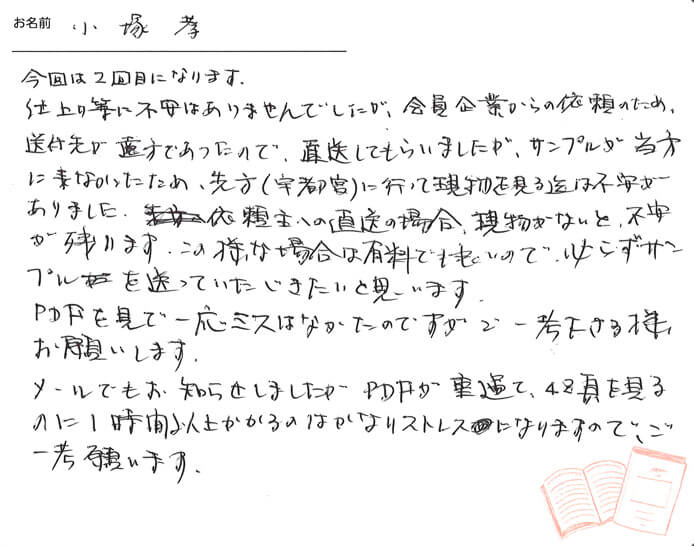 お名前 小塚孝
今回は2回目になります.
仕上り等に不安はありませんでしたが、会員企業からの依頼のため、
送付先が遠方であったので、直送してもらいましたが、サンプルが当方
に来なかったため、先方(宇都宮)に行って現物を見る迄は不安が
ありました. 依頼主への直送の場合、現物がないと、不安
が残ります. この様な場合は有料でも良いので、必らずサン
プルを送っていただきたいと思います.
PDFを見て一応ミスはなかったのですがご一考下さる様、
お願いします.
メールでもお知らせしましたがPDFが重過て、48頁を見る
のに1時間以上かかるのはかなりストレスになりますので、ご
一考願います.